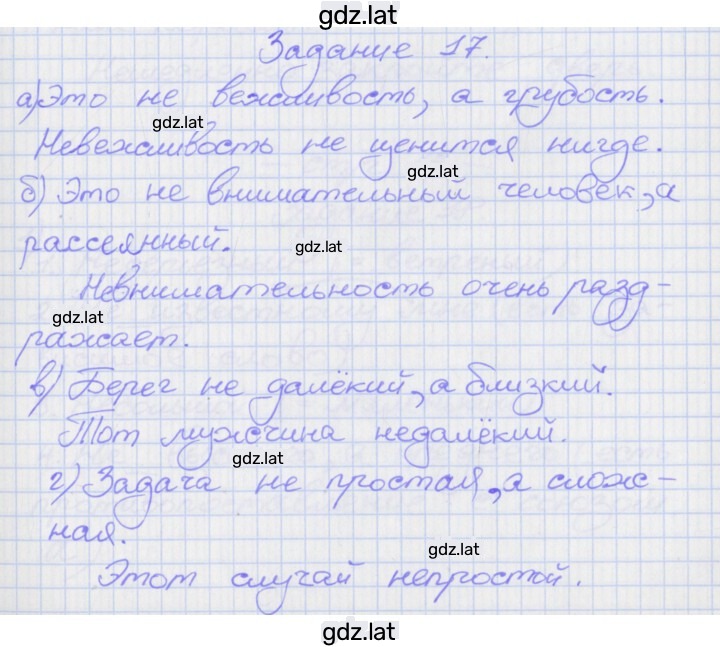 gdz.lat
Задание 17.
а) Это не вежливость, а грубость.
gdz.lat
Невежливость не ценится нигде.
gdz.lat
б) Это не внимательный человек, а
рассеянный.
gdz.lat
Невнимательность очень разд-
gdz.lat
ражает.
в) Берег не далёкий, а близкий.
Тот мужчина недалёкий.
gdz.lat
г) Задача не простая, а слож-
ная.
gdz.lat
Этот случай непростой.
gdz.lat